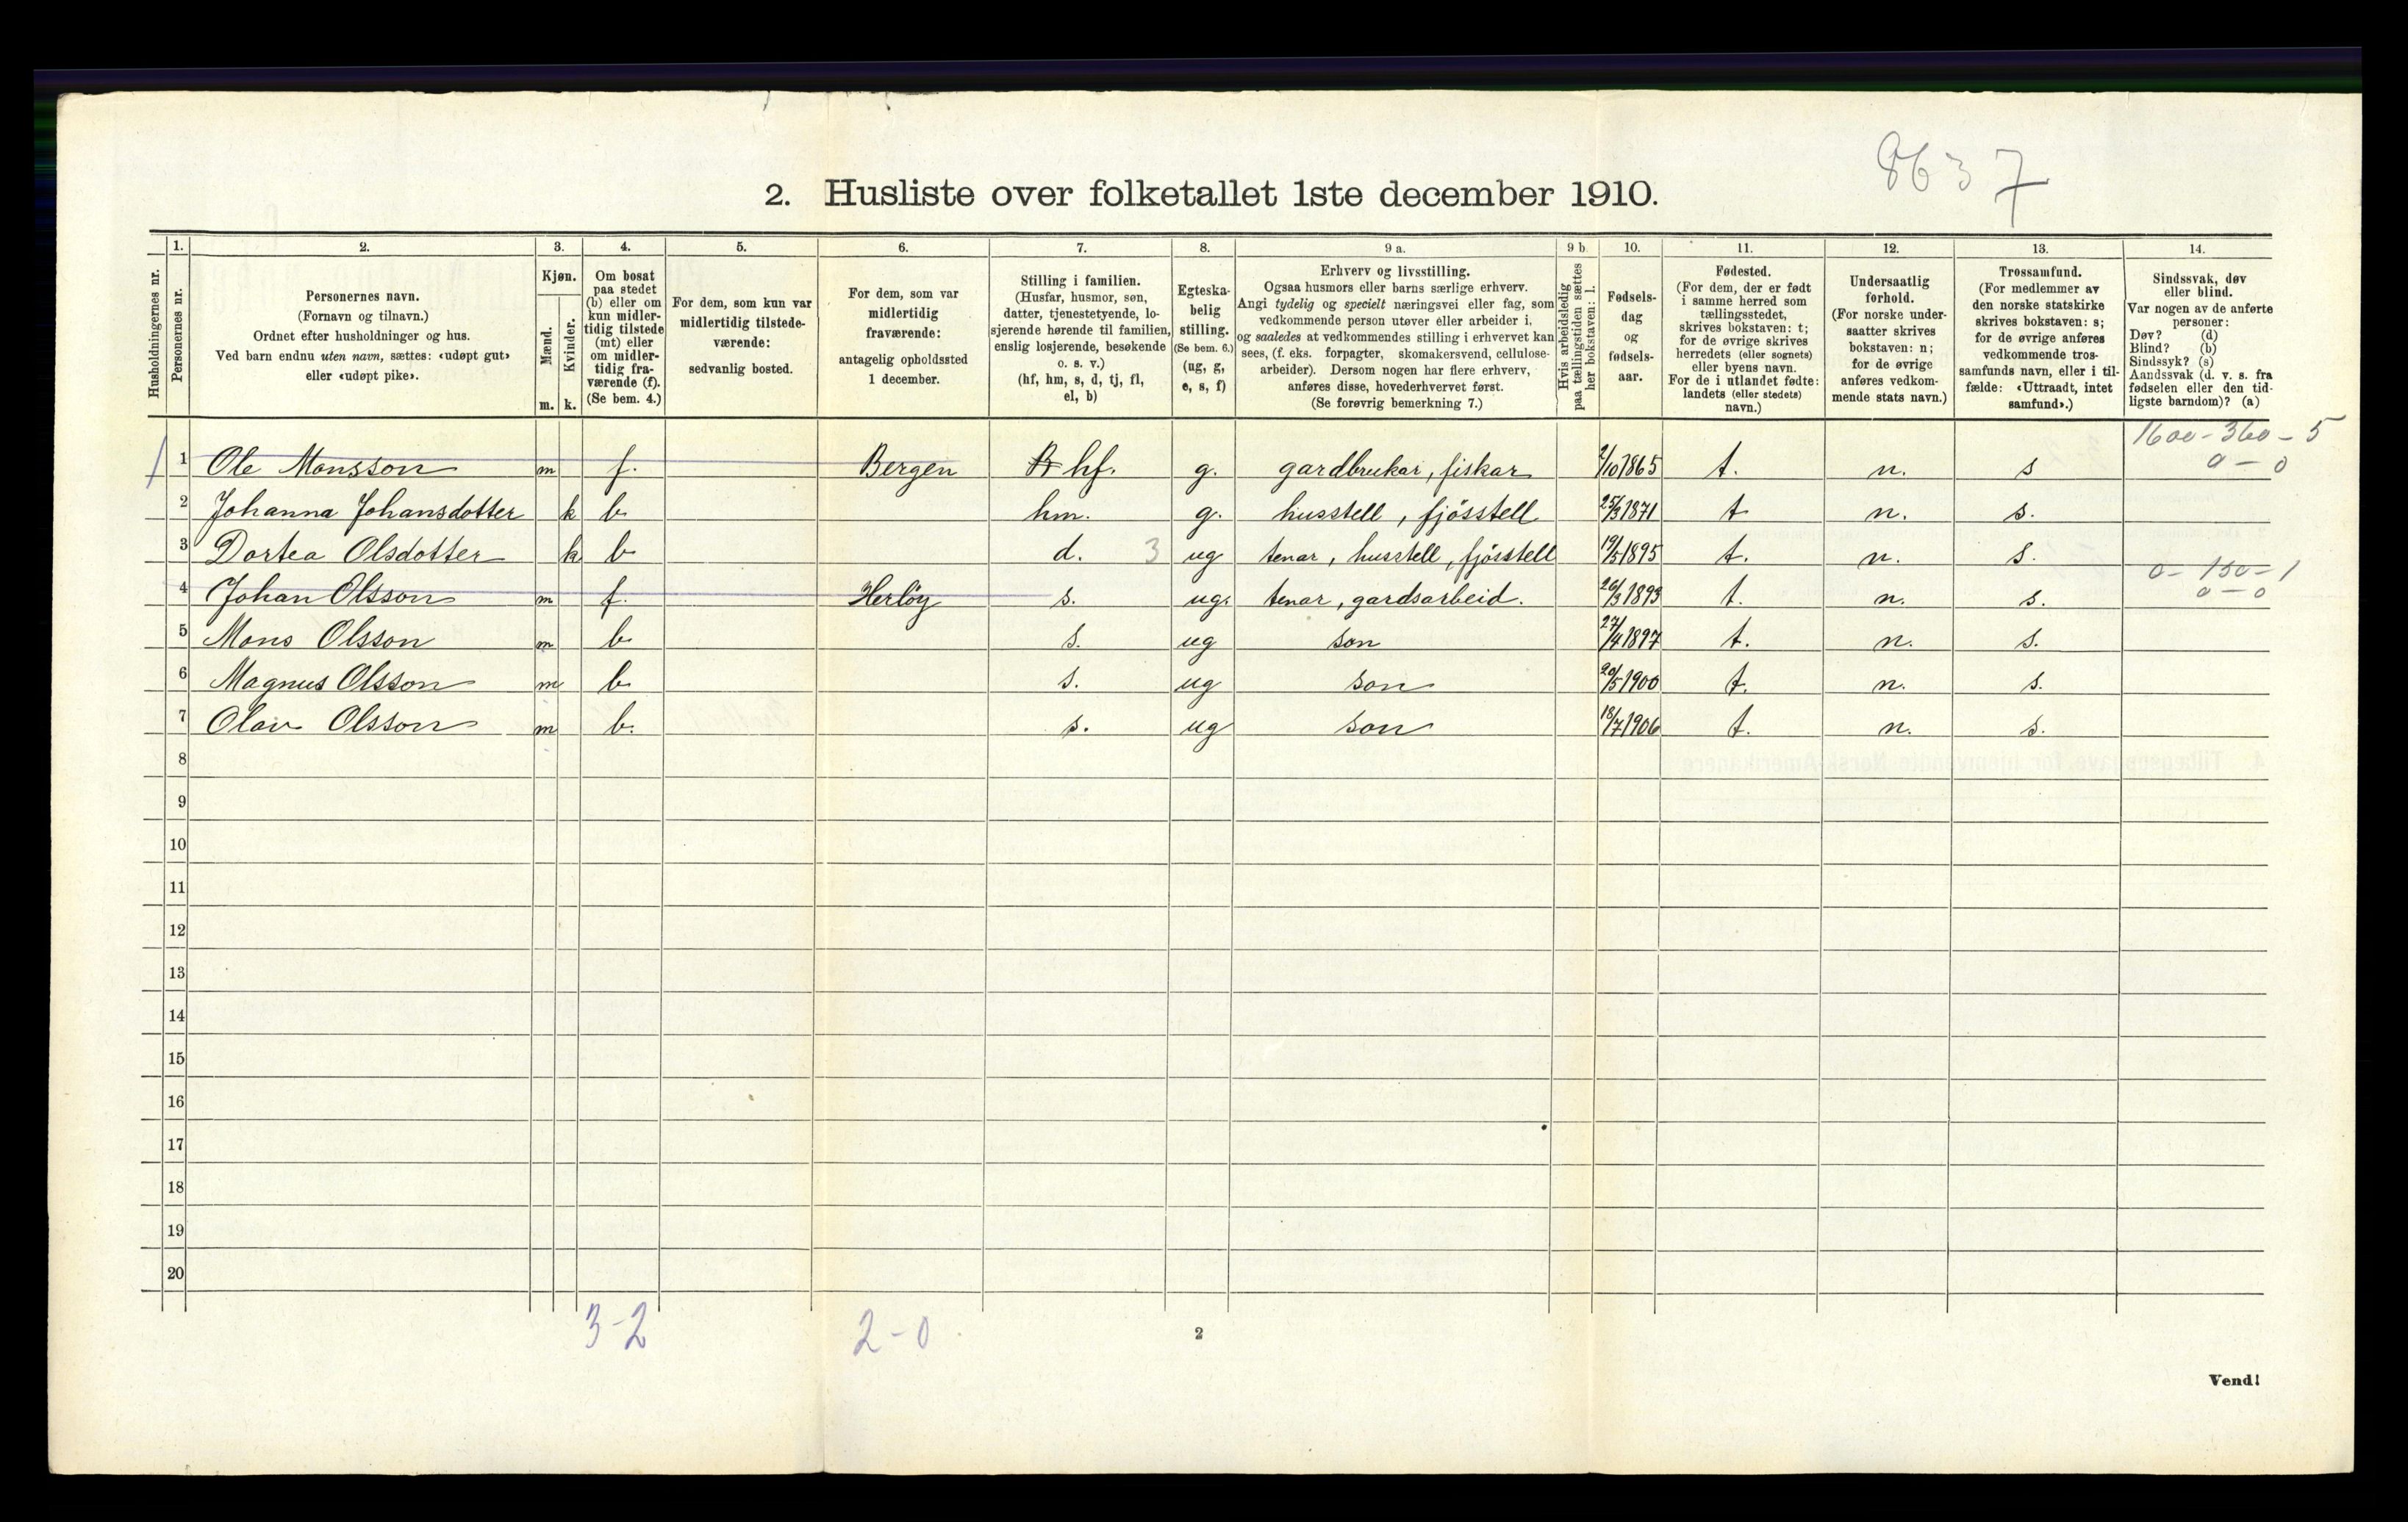 8637
2. Husliste over folketallet 1ste december 1910.
Husholdningernes nr.
1. Personernes nr.
2. Personernes navn.
(Fornavn og tilnavn.)
Ordnet efter husholdninger og hus.
Ved barn endnu uten navn, sættes: «udøpt gut»
eller «udøpt pike».
3. Kjøn.
Mænd. Kvinder.
m. k.
4. Om bosat
paa stedet
(b) eller om
kun midler-
tidig tilstede
(mt) eller
om midler-
tidig fra-
værende (f).
(Se bem. 4.)
5. For dem, som kun var
midlertidig tilstede-
værende:
sedvanlig bosted.
6. For dem, som var
midlertidig
fraværende:
antagelig opholdssted
1 december.
7. Stilling i familien.
(Husfar, husmor, søn,
datter, tjenestetyende, lo-
sjerende hørende til familien,
enslig losjerende, besøkende
o. s. v.)
(hf, hm, s, d, tj, fl,
el, b)
8. Egteska-
belig
stilling.
(Se bem. 6.)
(ug, g,
e, s, f)
9 a. Erhverv og livsstilling.
Ogsaa husmors eller barns særlige erhverv.
Angi tydelig og specielt næringsvei eller fag, som
vedkommende person utøver eller arbeider i,
og saaledes at vedkommendes stilling i erhvervet kan
sees, (f. eks. forpagter, skomakersvend, cellulose-
arbeider). Dersom nogen har flere erhverv,
anføres disse, hovederhvervet først.
(Se forøvrig bemerkning 7.)
9 b. Hvis arbeidsledig
paa tællingstiden sættes
her bokstaven: l.
10. Fødsels-
dag
og
fødsels-
aar.
11. Fødested.
(For dem, der er født
i samme herred som
tællingsstedet,
skrives bokstaven: t;
for de øvrige skrives
herredets (eller sognets)
eller byens navn.
For de i utlandet fødte:
landets (eller stedets)
navn.)
12. Undersaatlig
førhold.
(For norske under-
saatter skrives
bokstaven: n;
for de øvrige
anføres vedkom-
mende stats navn.)
13. Trossamfund.
(For medlemmer av
den norske statskirke
skrives bokstaven: s;
for de øvrige anføres
vedkommende tros-
samfunds navn, eller i til-
fælde: «Uttraadt, intet
samfund».)
14. Sindssvak, døv
eller blind.
Var nogen av de anførte
personer:
Døv? (d)
Blind? (b)
Sindssyk? (s)
Aandssvak (d. v. s. fra
fødselen eller den tid-
ligste barndom)? (a)
1600-360-5
0-0
1 Ole Monsson m f. Bergen hf. g. gardbrukar, fiskar 2/10 1865 t. n. s
2 Johanna Johansdotter k b. hm. g. husstell, fjösstell 25/3 1871 t n. s.
3 Dortea Olsdotter k b d. 3 ug tenar, husstell, fjösstell 19/5 1895 t. n. s.
0-150-1
0-0
4 Johan Olsson m f. Herlöy s. ug. tenar, gardsarbeid. 26/3 1893 t. n. s.
5 Mons Olsson m b. s. ug son 27/4 1897 t. n. s.
6 Magnus Olsson m b. s. ug son 20/5 1900 t. n. s.
7 Olav Olsson m b. s. ug son 18/7 1906 t. n. s.
8
9
10
11
12
13
14
15
16
17
18
19
20
3-2
2-0
2
Vend!